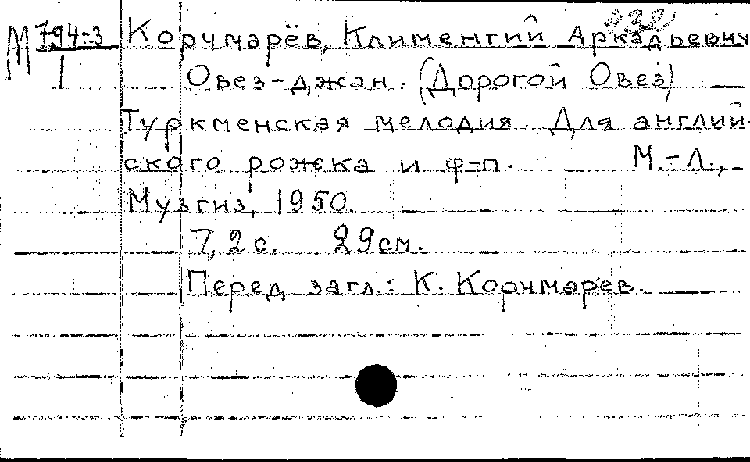 М 794-3 Корчмарёв, Климентий Аркадьевич
1 Овез-джан. (Дорогой Овез)
Туркменская мелодия. Для англий-
ского рожка и ф-п. М.-Л.,
Музгиз, 1950.
7,2 с. 29 см.
Перед загл.: К. Корчмарев.